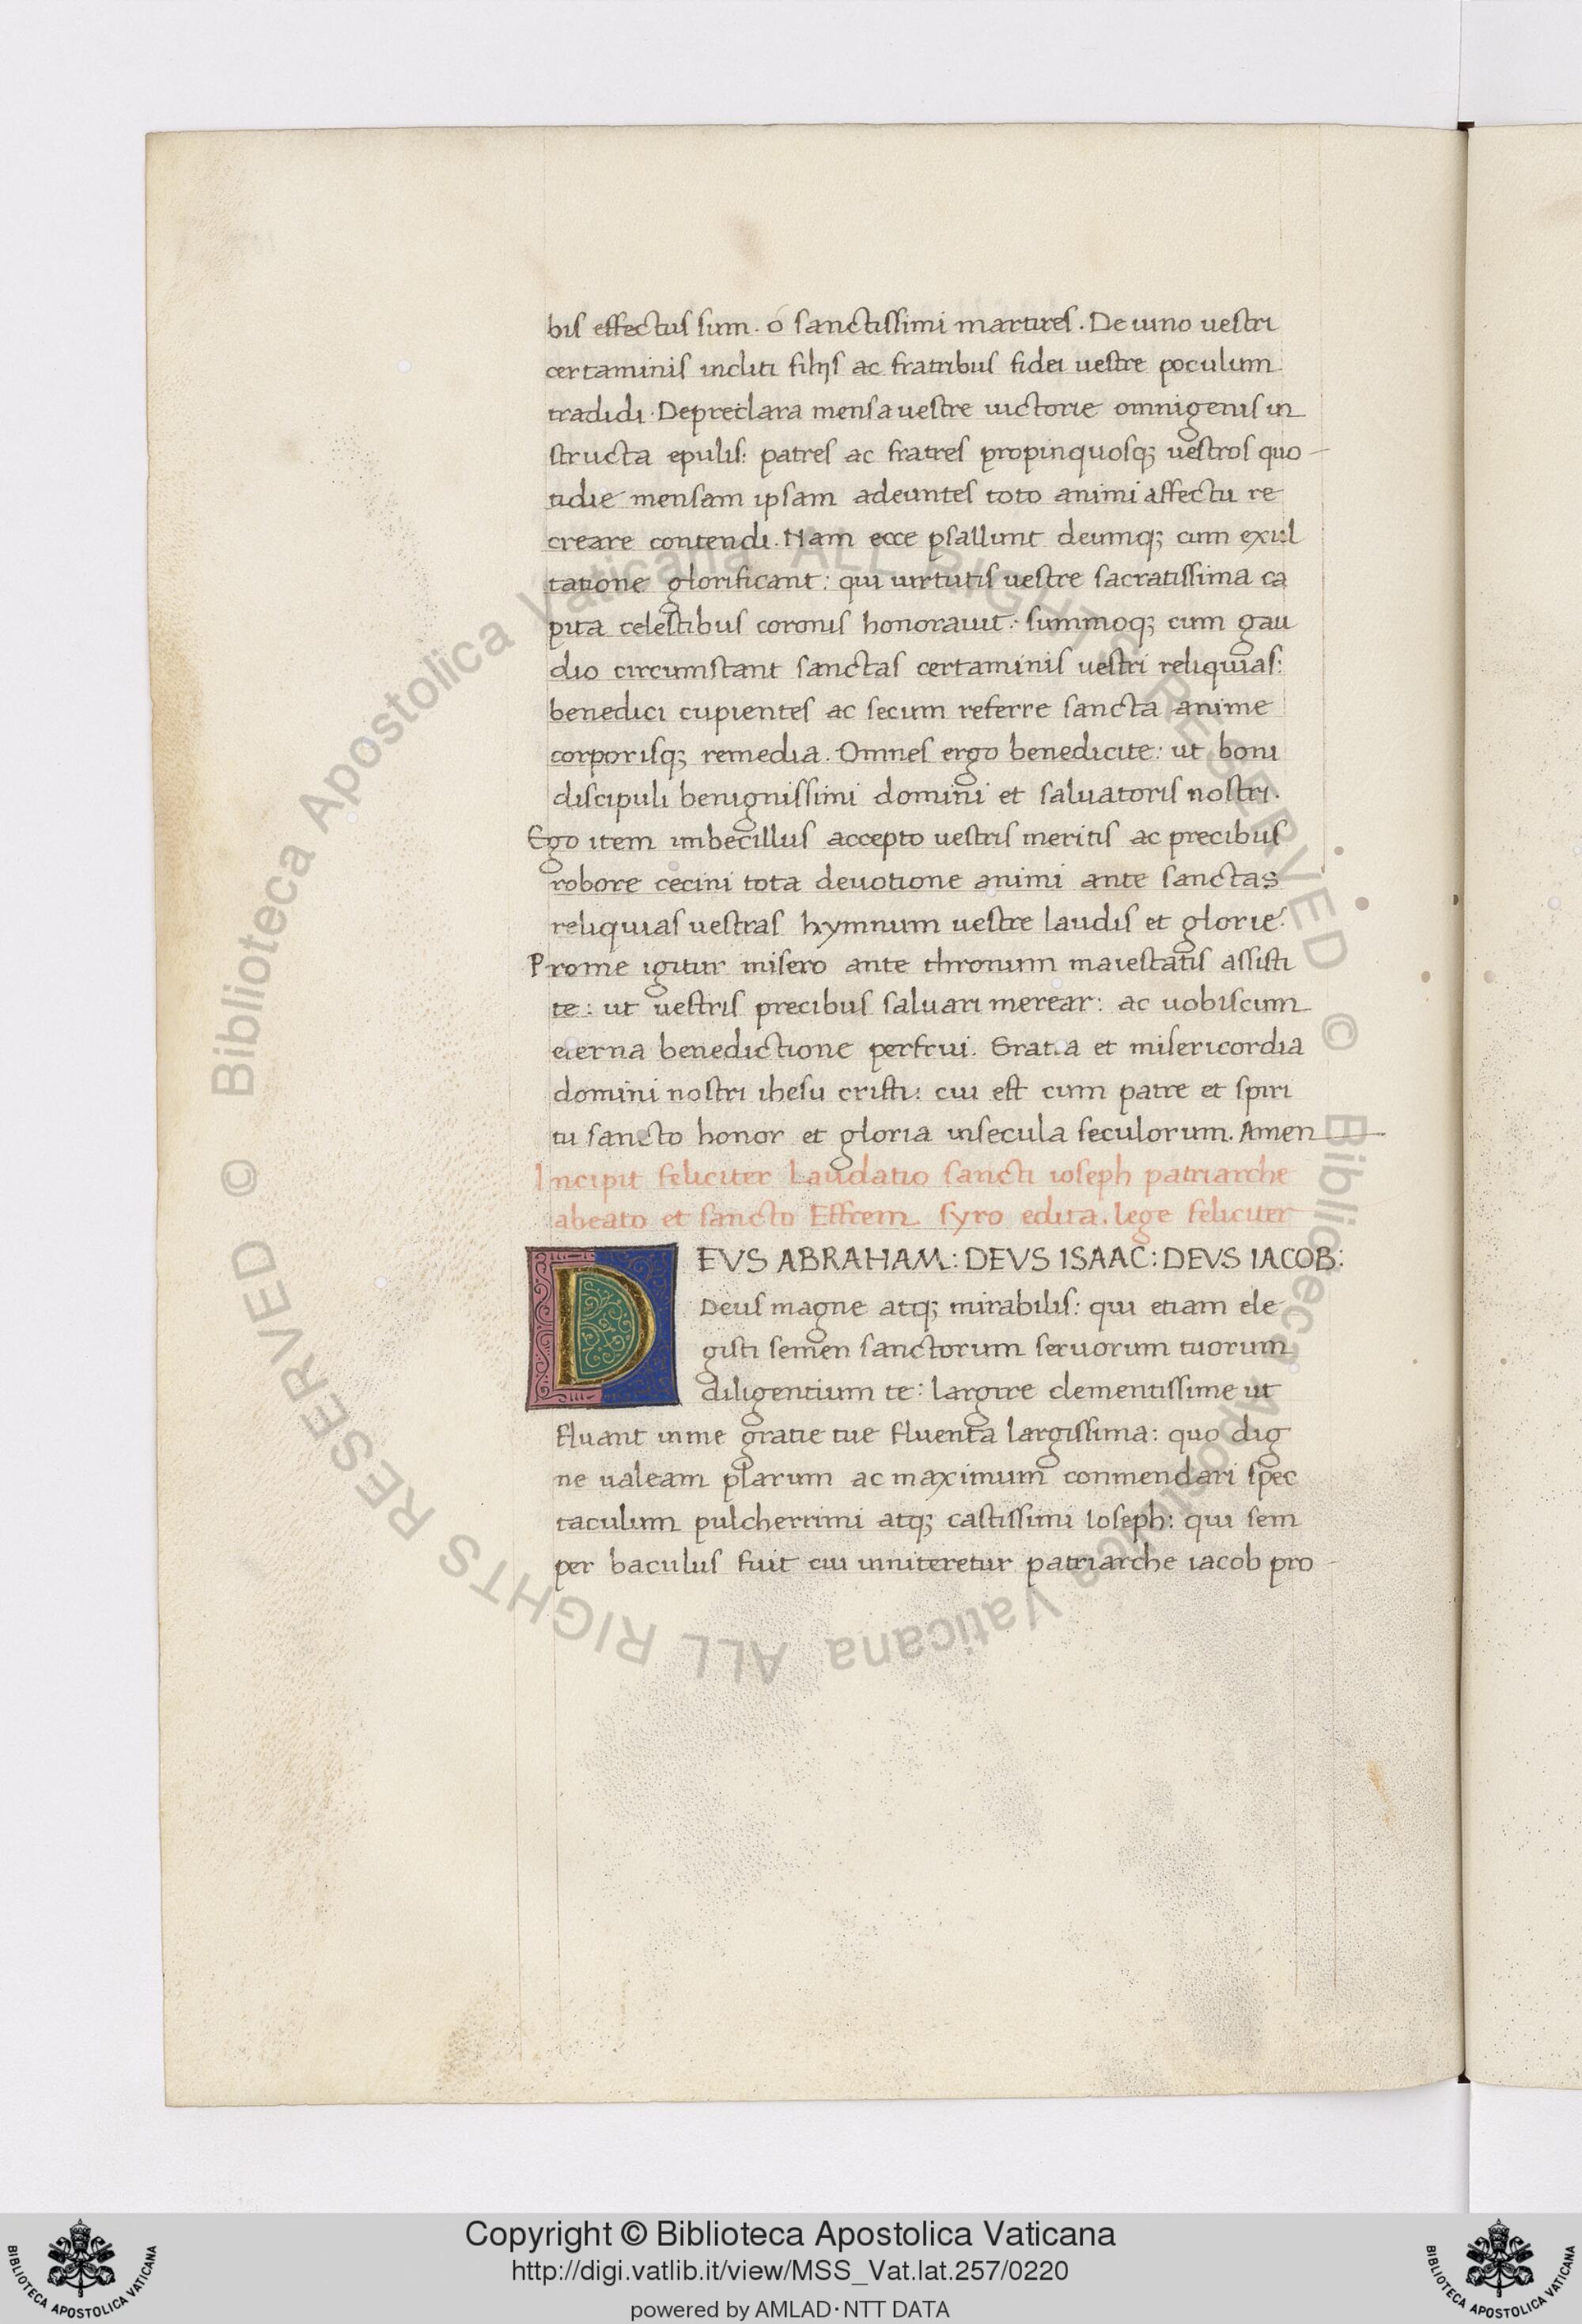 bis effectus sum. o sanctissimi martires. De uino uestri
certaminis incliti filijs ac fratribus fidei uestre poculum
tradidi. De preclara mensa uestre uictorie omnigenis in
structa epulis: patres ac fratres propinquosq; uestros quo-
tidie mensam ipsam adeuntes toto animi affectu re
creare contendi. Nam ecce psallunt deumq; cum exul
tatione glorificant: qui uirtutis uestre sacratissima ca
pita celestibus coronis honorauit: summoq; cum gau
dio circumstant sanctas certaminis uestri reliquias:
benedici cupientes ac secum referre sancta anime
corporisq; remedia. Omnes ergo benedicite: ut boni
discipuli benignissimi domini et saluatoris nostri.
Ego item imbecillus accepto uestris meritis ac precibus
robore cecini tota deuotione animi ante sanctas
reliquias uestras hymnum uestre laudis et glorie.
Pro me igitur misero ante thronum maiestatis assisti
te: ut uestris precibus saluari merear: ac uobiscum
eterna benedictione perfrui. Gratia et misericordia
domini nostri ihesu cristi: cui est cum patre et spiri
tu sancto honor et gloria in secula seculorum. Amen
Incipit feliciter Laudatio sancti ioseph patriarche
a beato et sancto Effrem syro edita. lege feliciter
DEVS ABRAHAM: DEVS ISAAC: DEVS IACOB:
Deus magne atq; mirabilis: qui etiam ele
gisti semen sanctorum seruorum tuorum
diligentium te: largire clementissime ut
fluant in me gratie tue fluenta largissima: quo dig
ne ualeam ac maximum conmendari spec
taculum pulcherrimi atq; castissimi Ioseph: qui sem
per baculus fuit cui inniteretur patriarche iacob pro-
© Biblioteca Apostolica Vaticana ALL RIGHTS RESERVED © Biblioteca Apostolica Vaticana ALL RIGHTS RESERVED
Copyright © Biblioteca Apostolica Vaticana
http://digi.vatlib.it/view/MSS_Vat.lat.257/0220
powered by AMLAD·NTT DATA
BIBLIOTECA APOSTOLICA VATICANA
BIBLIOTECA APOSTOLICA VATICANA